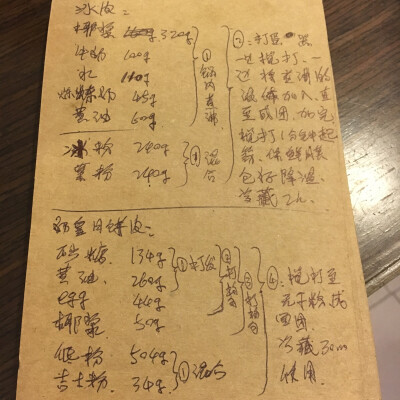 冰皮:
椰浆 320g
牛奶 100g
水 110g
炼奶 45g
黄油 60g
①锅内煮沸
冰粉 240g
栗粉 240g
①混合
②:打蛋器
一边搅打,一
边将全沸的
液体加入,直
至成团,加完
搅打1分钟起
筋,保鲜膜
包好降温,
冷藏2h。
奶皇月饼皮:
砂糖 134g
黄油 260g
egg 44g
椰浆 50g
低粉 504g
吉士粉 34g
①打发
②打均匀
③打均匀
①混合
④:搅打至
无干粉成
面团.
冷藏30m
使用.